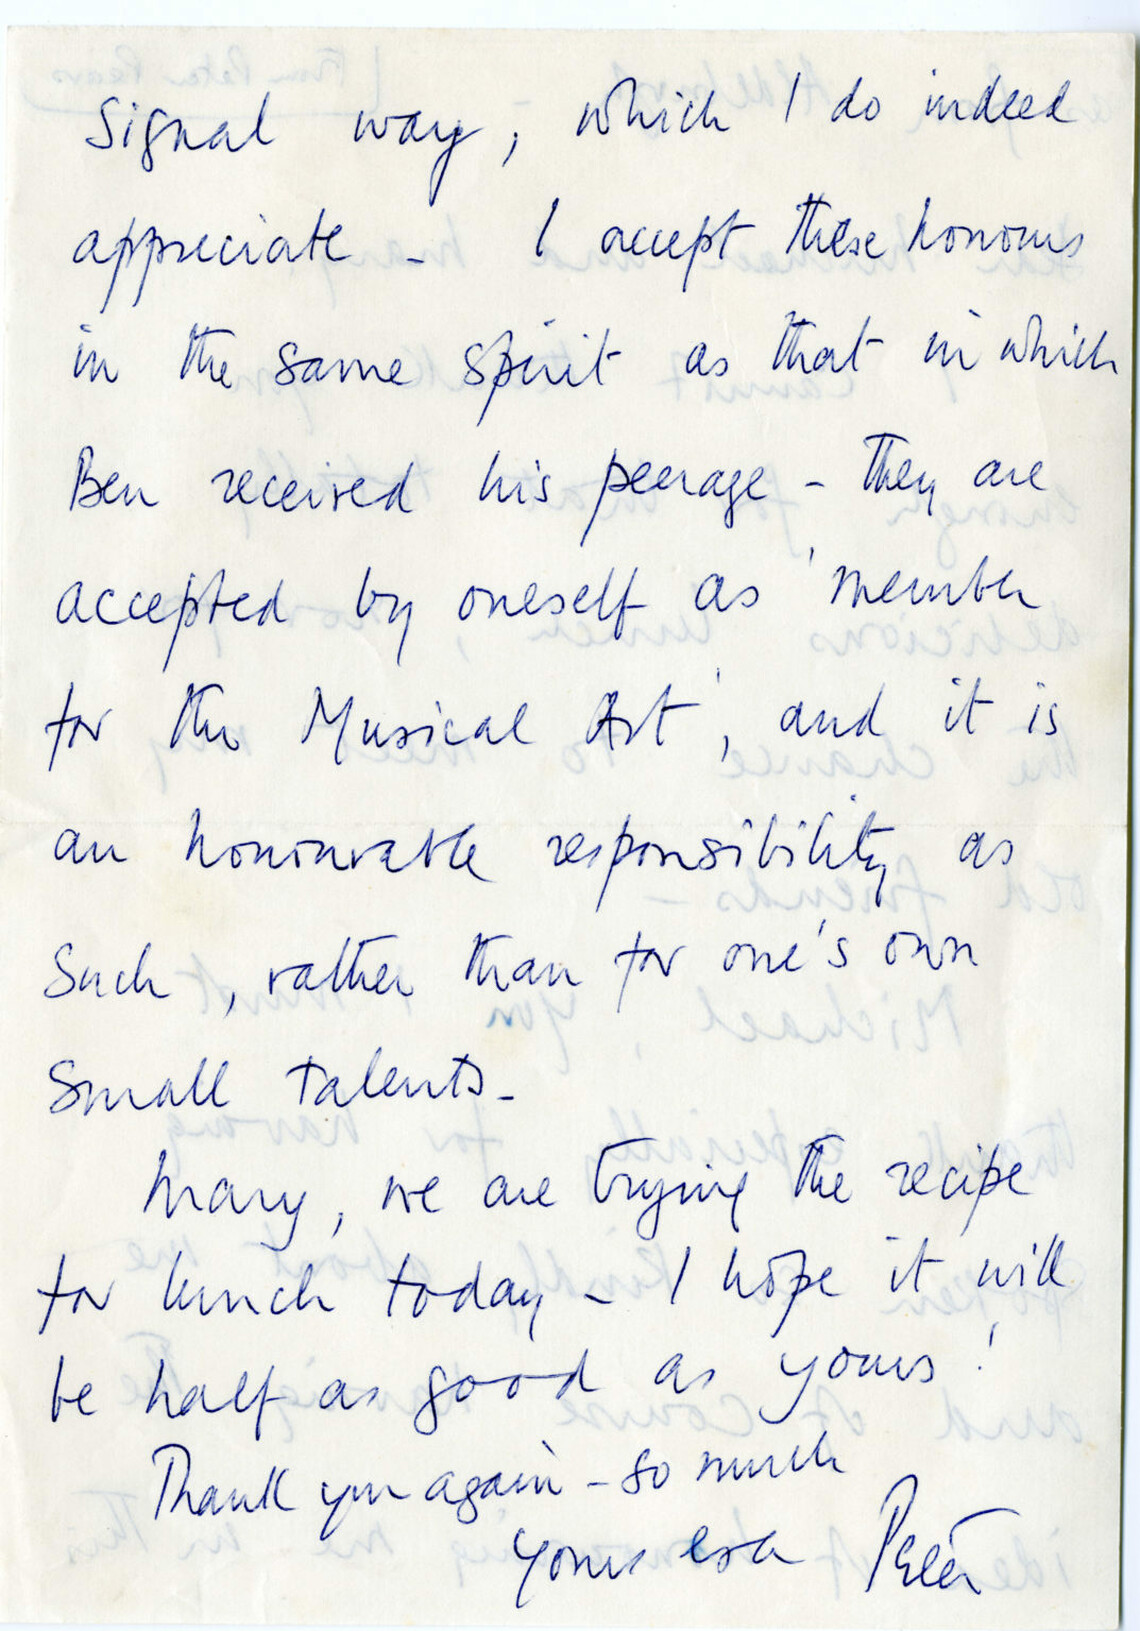 signal way, which I do indeed
appreciate - I accept these honours
in the same spirit as that in which
Ben received his peerage - they are
accepted by oneself as 'member
for the Musical Art', and it is
an honourable responsibility as
such, rather than for one's own
small talents -
Mary, we are trying the recipe
for lunch today - I hope it will
be half as good as yours!
Thank you again - so much
Yours ever Peter